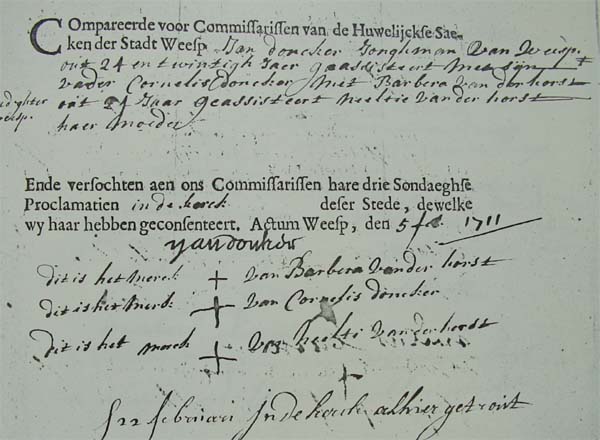 COmpareerde voor Commissarissen van de Huwelijckse Sae-
ken der Stadt Weesp Jan doncker Jongh man van weesp
out 24 en twintigh Jaer geassisteert met sijn
vader Cornelis doncker, Met Barbera van der horst
out 24 Jaar geassisteert neeltie van der horst
haer moeder
Ende versochten aen ons Commissarissen hare drie Sondaeghse
Proclamatien in de kerck deser Stede, dewelke
wy haar hebben geconsenteert. Actum Weesp, den 5 feb 1711
yan donker
dit is het merck + van Barbera van der horst
dit is het merck + van Cornelis doncker
dit is het merck + van neelti van der horst
22 februari In de kerck alhier getrout